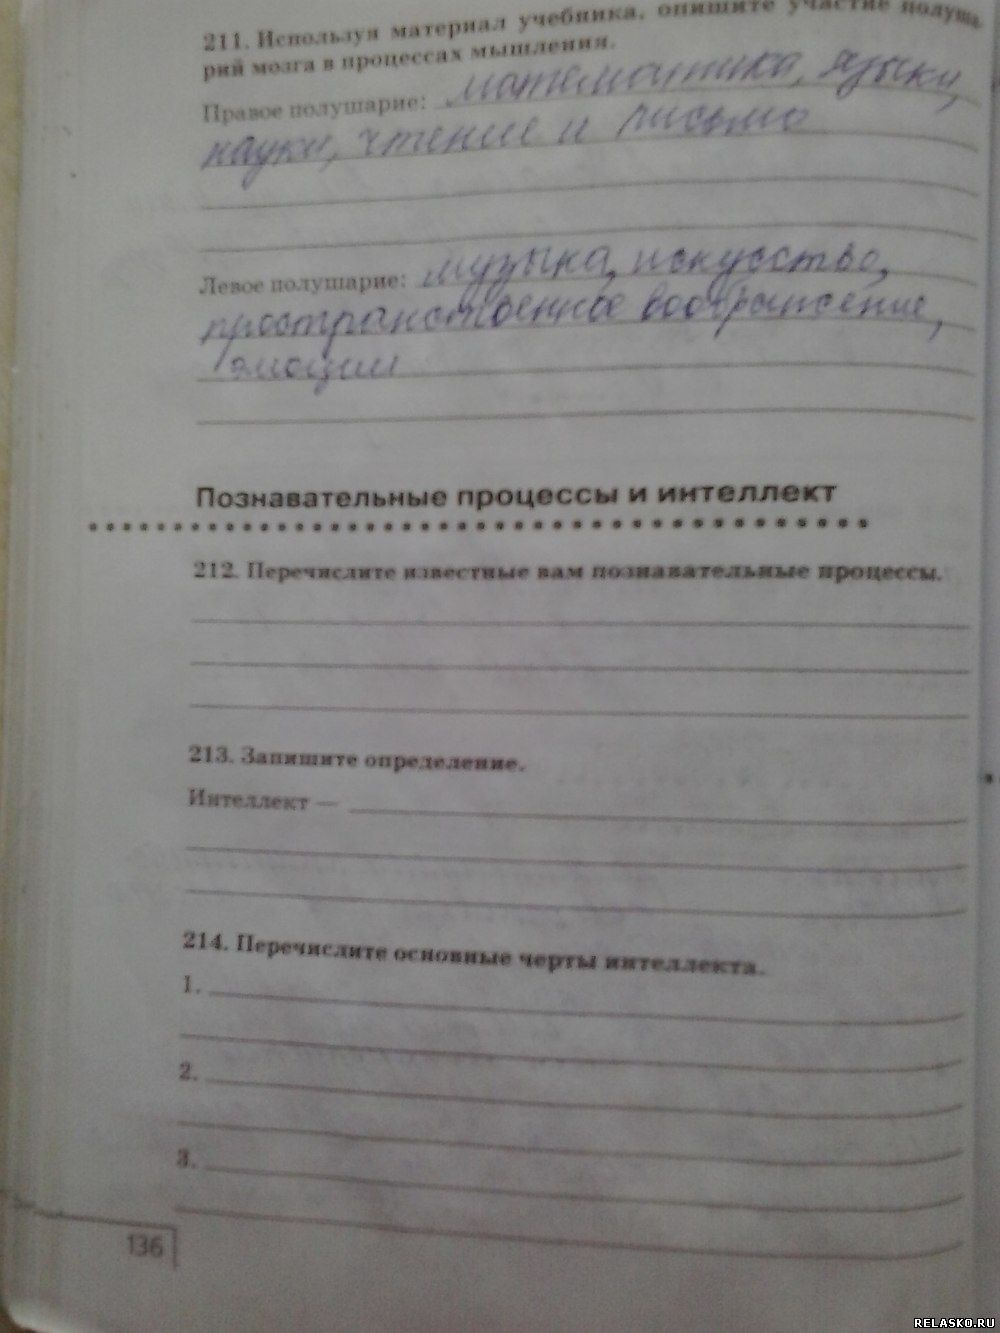 211. Используя материал учебника, опишите участие полуша-
рий мозга в процессах мышления.
Правое полушарие: математика, языки,
науки, чтение и письмо
Левое полушарие: музыка, искусство,
пространственное воображение,
эмоции
Познавательные процессы и интеллект
212. Перечислите известные вам познавательные процессы.
213. Запишите определение.
Интеллект —
214. Перечислите основные черты интеллекта.
1.
2.
3.
136
RELASKO.RU